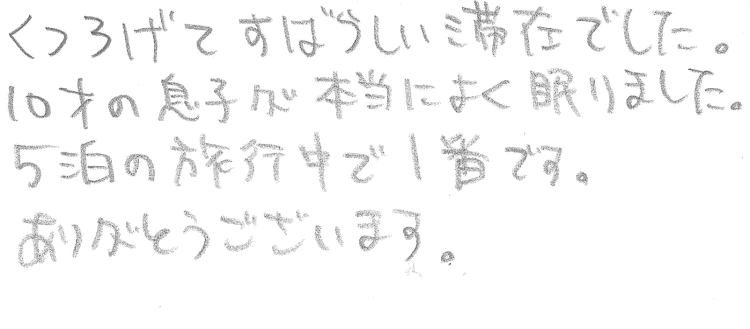 くつろげて すばらしい滞在でした。
10才の息子が本当によく眠りました。
5泊の旅行中で1番です。
ありがとうございます。